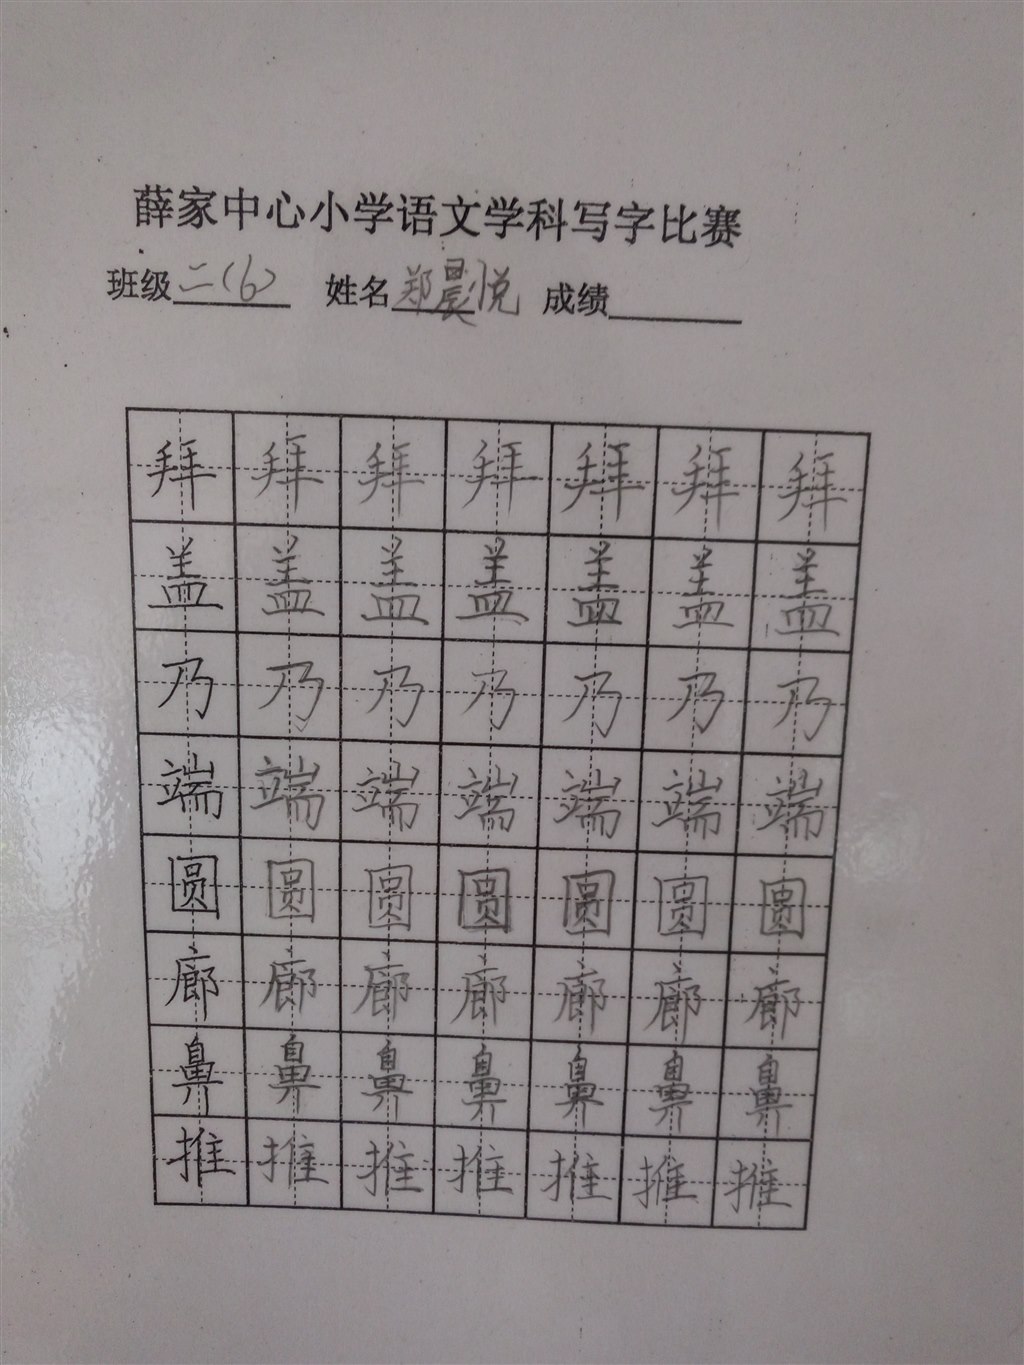 薛家中心小学语文学科写字比赛
班级二(6) 姓名郑晨悦 成绩
拜拜拜拜拜拜拜
盖盖盖盖盖盖盖
乃乃乃乃乃乃乃
端端端端端端端
圆圆圆圆圆圆圆
廊廊廊廊廊廊廊
鼻鼻鼻鼻鼻鼻鼻
推推推推推推推